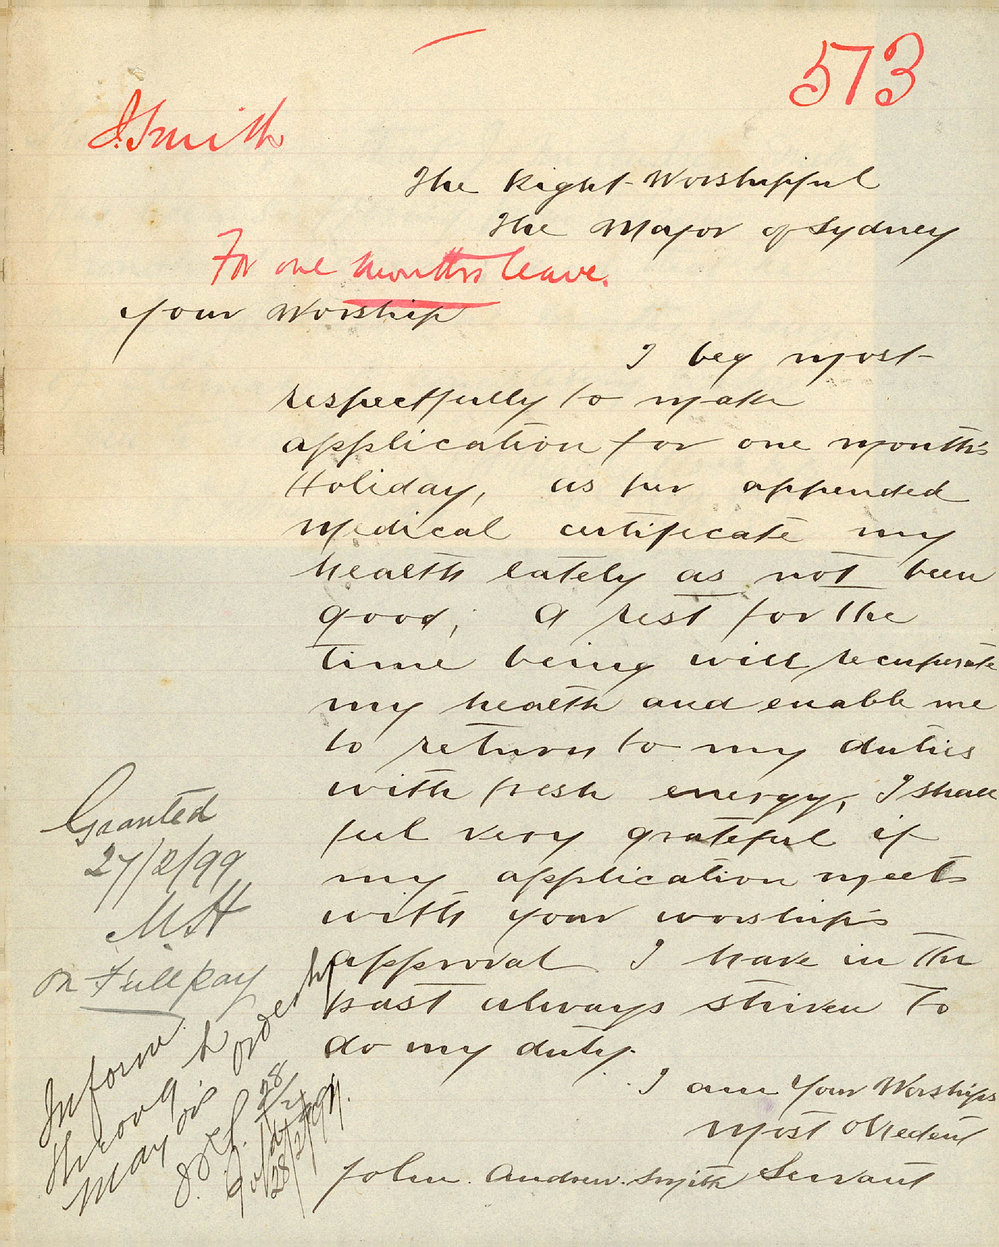 573
J. Smith
The Right Worshipful
The Mayor of Sydney
For one months leave.
Your Worship
I beg most
respectfully to make
application for one month's
Holiday, as per appended
Medical certificate my
health lately as not been
good; A rest for the
time being will recuperate
my health and enable me
to return to my duties
with fresh energy, I shall
feel very grateful if
my application meets
with your worship's
approval I have in the
past always striven to
do my duty.
I am Your Worships
most Obedent
John Andrew Smith Servant
Granted
27/2/99
M.H
on Full pay
Inform
through
Mayor's orderly
28/2
28/2/99